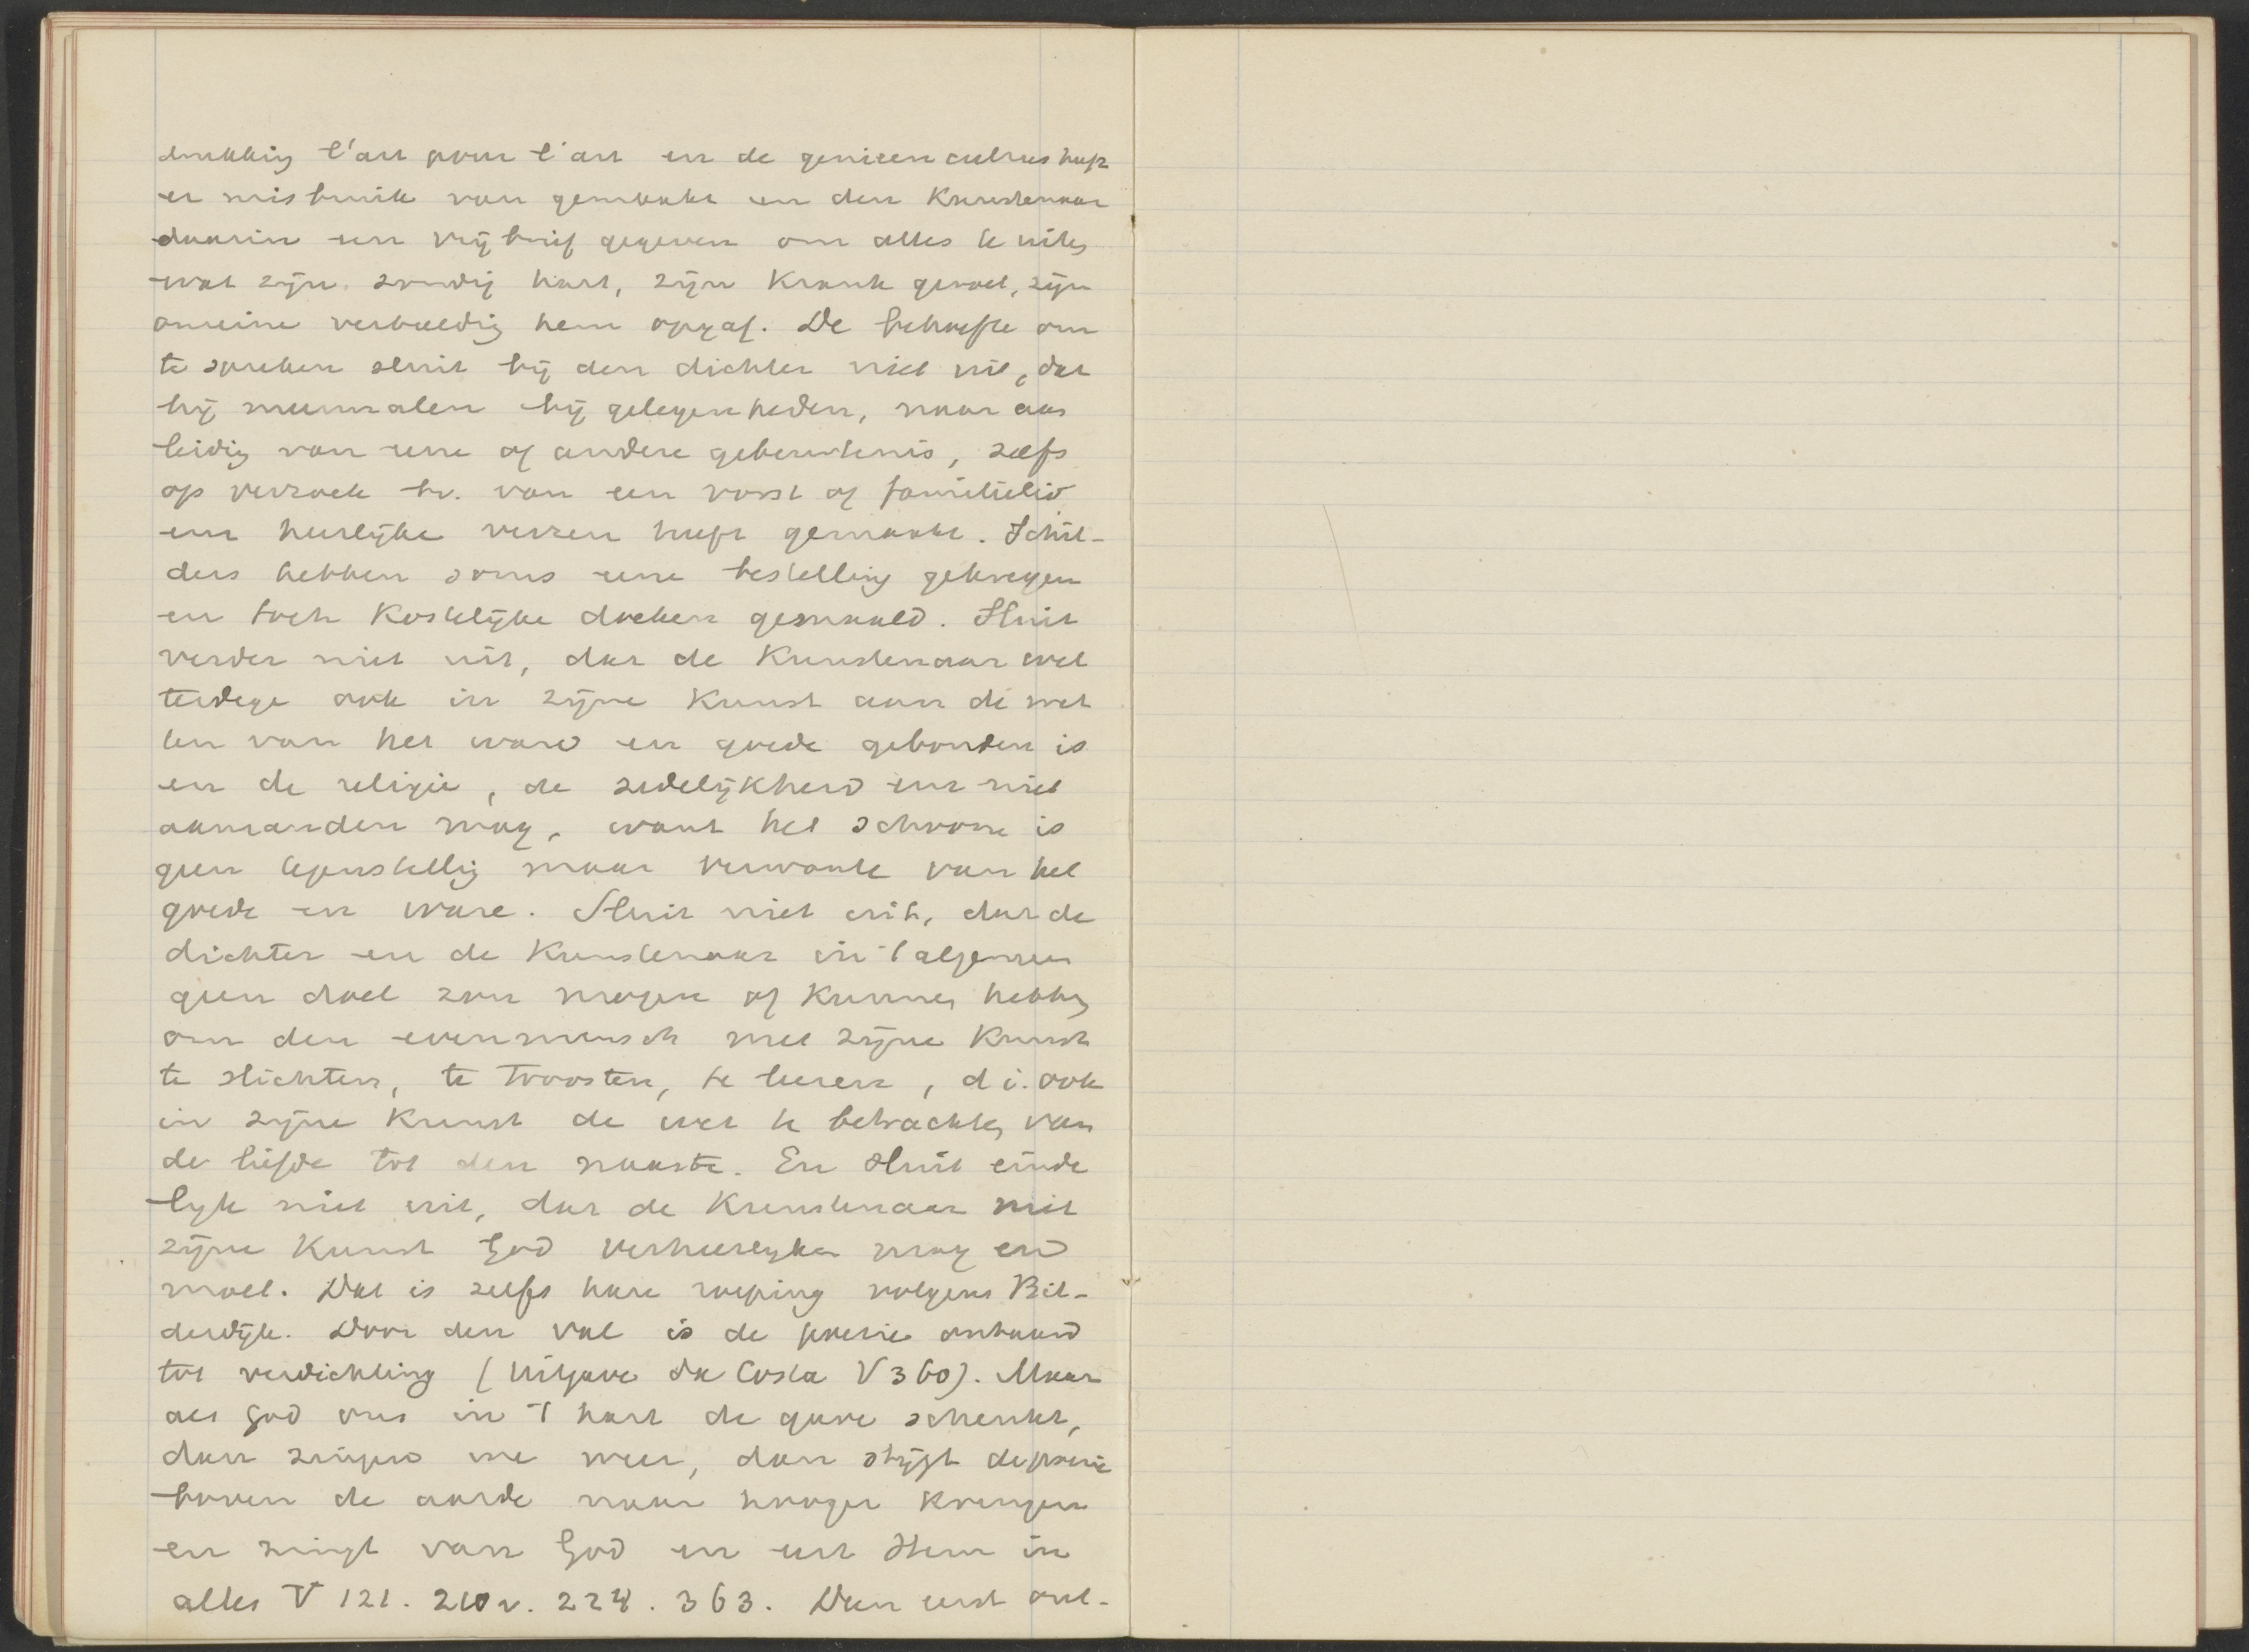 drukking l'art pour l'art en de genieën cultus heeft
er misbruik van gemaakt en den Kunstenaar
daarin een vrijbrief gegeven om alles te uiten
wat zijn zondig hart, zijn Krank gevoel, zijn
onreine verbeelding hem opgaf. De behoefte om
te spreken sluit bij den dichter niet uit, dat
hij meermalen bij gelegenheden, naar aan
leiding van eene of andere gebeurtenis, zelfs
op verzoek bv. van een vorst of familielid
een heerlijke verzen heeft gemaakt. Schil-
ders hebben soms eene bestelling gekregen
en toch Kostelijke doeken gemaald. Sluit
verder niet uit, dat de Kunstenaar wel
terdege ook in zijne Kunst aan de wet
ten van het ware en goede gebonden is
en de religie, de zedelijkheid enz niet
aanranden mag, want het schoone is
geen tegenstelling maar verwante van het
goede en ware. Sluit niet uit, dat de
dichter en de Kunstenaar in 't algemeen
geen doel zou mogen of Kunnen hebben
om den evenmensch met zijne Kunst
te stichten, te troosten, te leeren, d i. ook
in zijne Kunst de wet te betrachten van
de liefde tot den naaste. En sluit einde
lijk niet uit, dat de Kunstenaar met
zijne Kunst God verheerlijken mag en
moet. Dat is zelfs hare roeping volgens Bil-
derdijk. Door den val is de poesie ontaard
tot verdichting (Uitgave da Costa V 360). Maar
als God ons in 't hart de gave schenkt,
dan zingen we weer, dan stijgt de poesie
boven de aarde naar hooger Kringen
en zingt van God en eert Hem in
alles V 121. 210 v. 228. 363. Dan eerst ont-